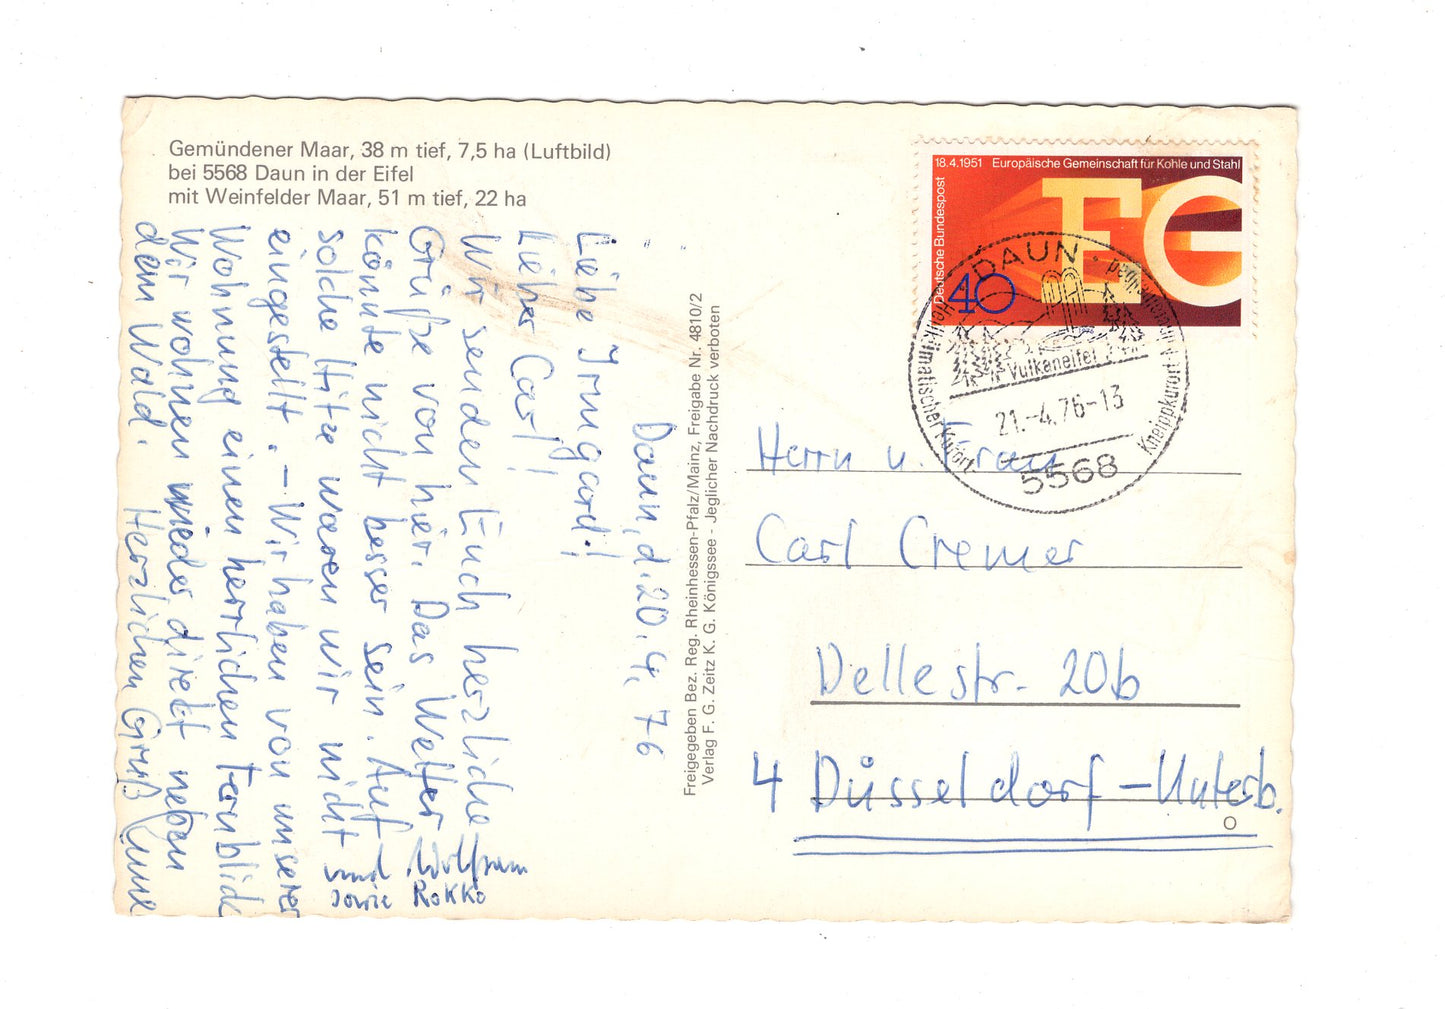 Gemündener Maar, 38 m tief, 7,5 ha (Luftbild)
bei 5568 Daun in der Eifel
mit Weinfelder Maar, 51 m tief, 22 ha
Daun, d. 20. 4. 76
Liebe Irmgard!
Lieber Carl!
Wir senden Euch herzliche
Grüße von hier. Das Wetter
könnte nicht besser sein. Auf
solche Hitze waren wir nicht
eingestellt. – Wir haben von unserer
Wohnung einen herrlichen Fernblick
Wir wohnen wieder direkt neben
dem Wald. Herzlichen Gruß
und Wolfram
sowie Rokko
Freigegeben Bez. Reg. Rheinhessen-Pfalz/Mainz, Freigabe Nr. 4810/2
Verlag F. G. Zeitz K. G. Königssee - Jeglicher Nachdruck verboten
18.4.1951 Europäische Gemeinschaft für Kohle und Stahl
Deutsche Bundespost
EG
40
DAUN
Heilklimatischer Kurort
Kneippkurort
Vulkaneifel
21.-4.76-13
5568
Herrn u. Frau
Carl Cremer
Dellestr. 20b
4 Düsseldorf-Unterb.